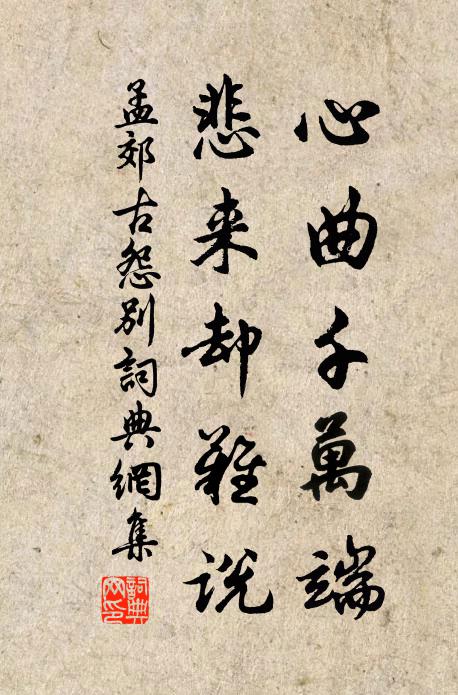 心曲千萬端
悲来却難説
孟郊古怨别詞典網集
詞典网印